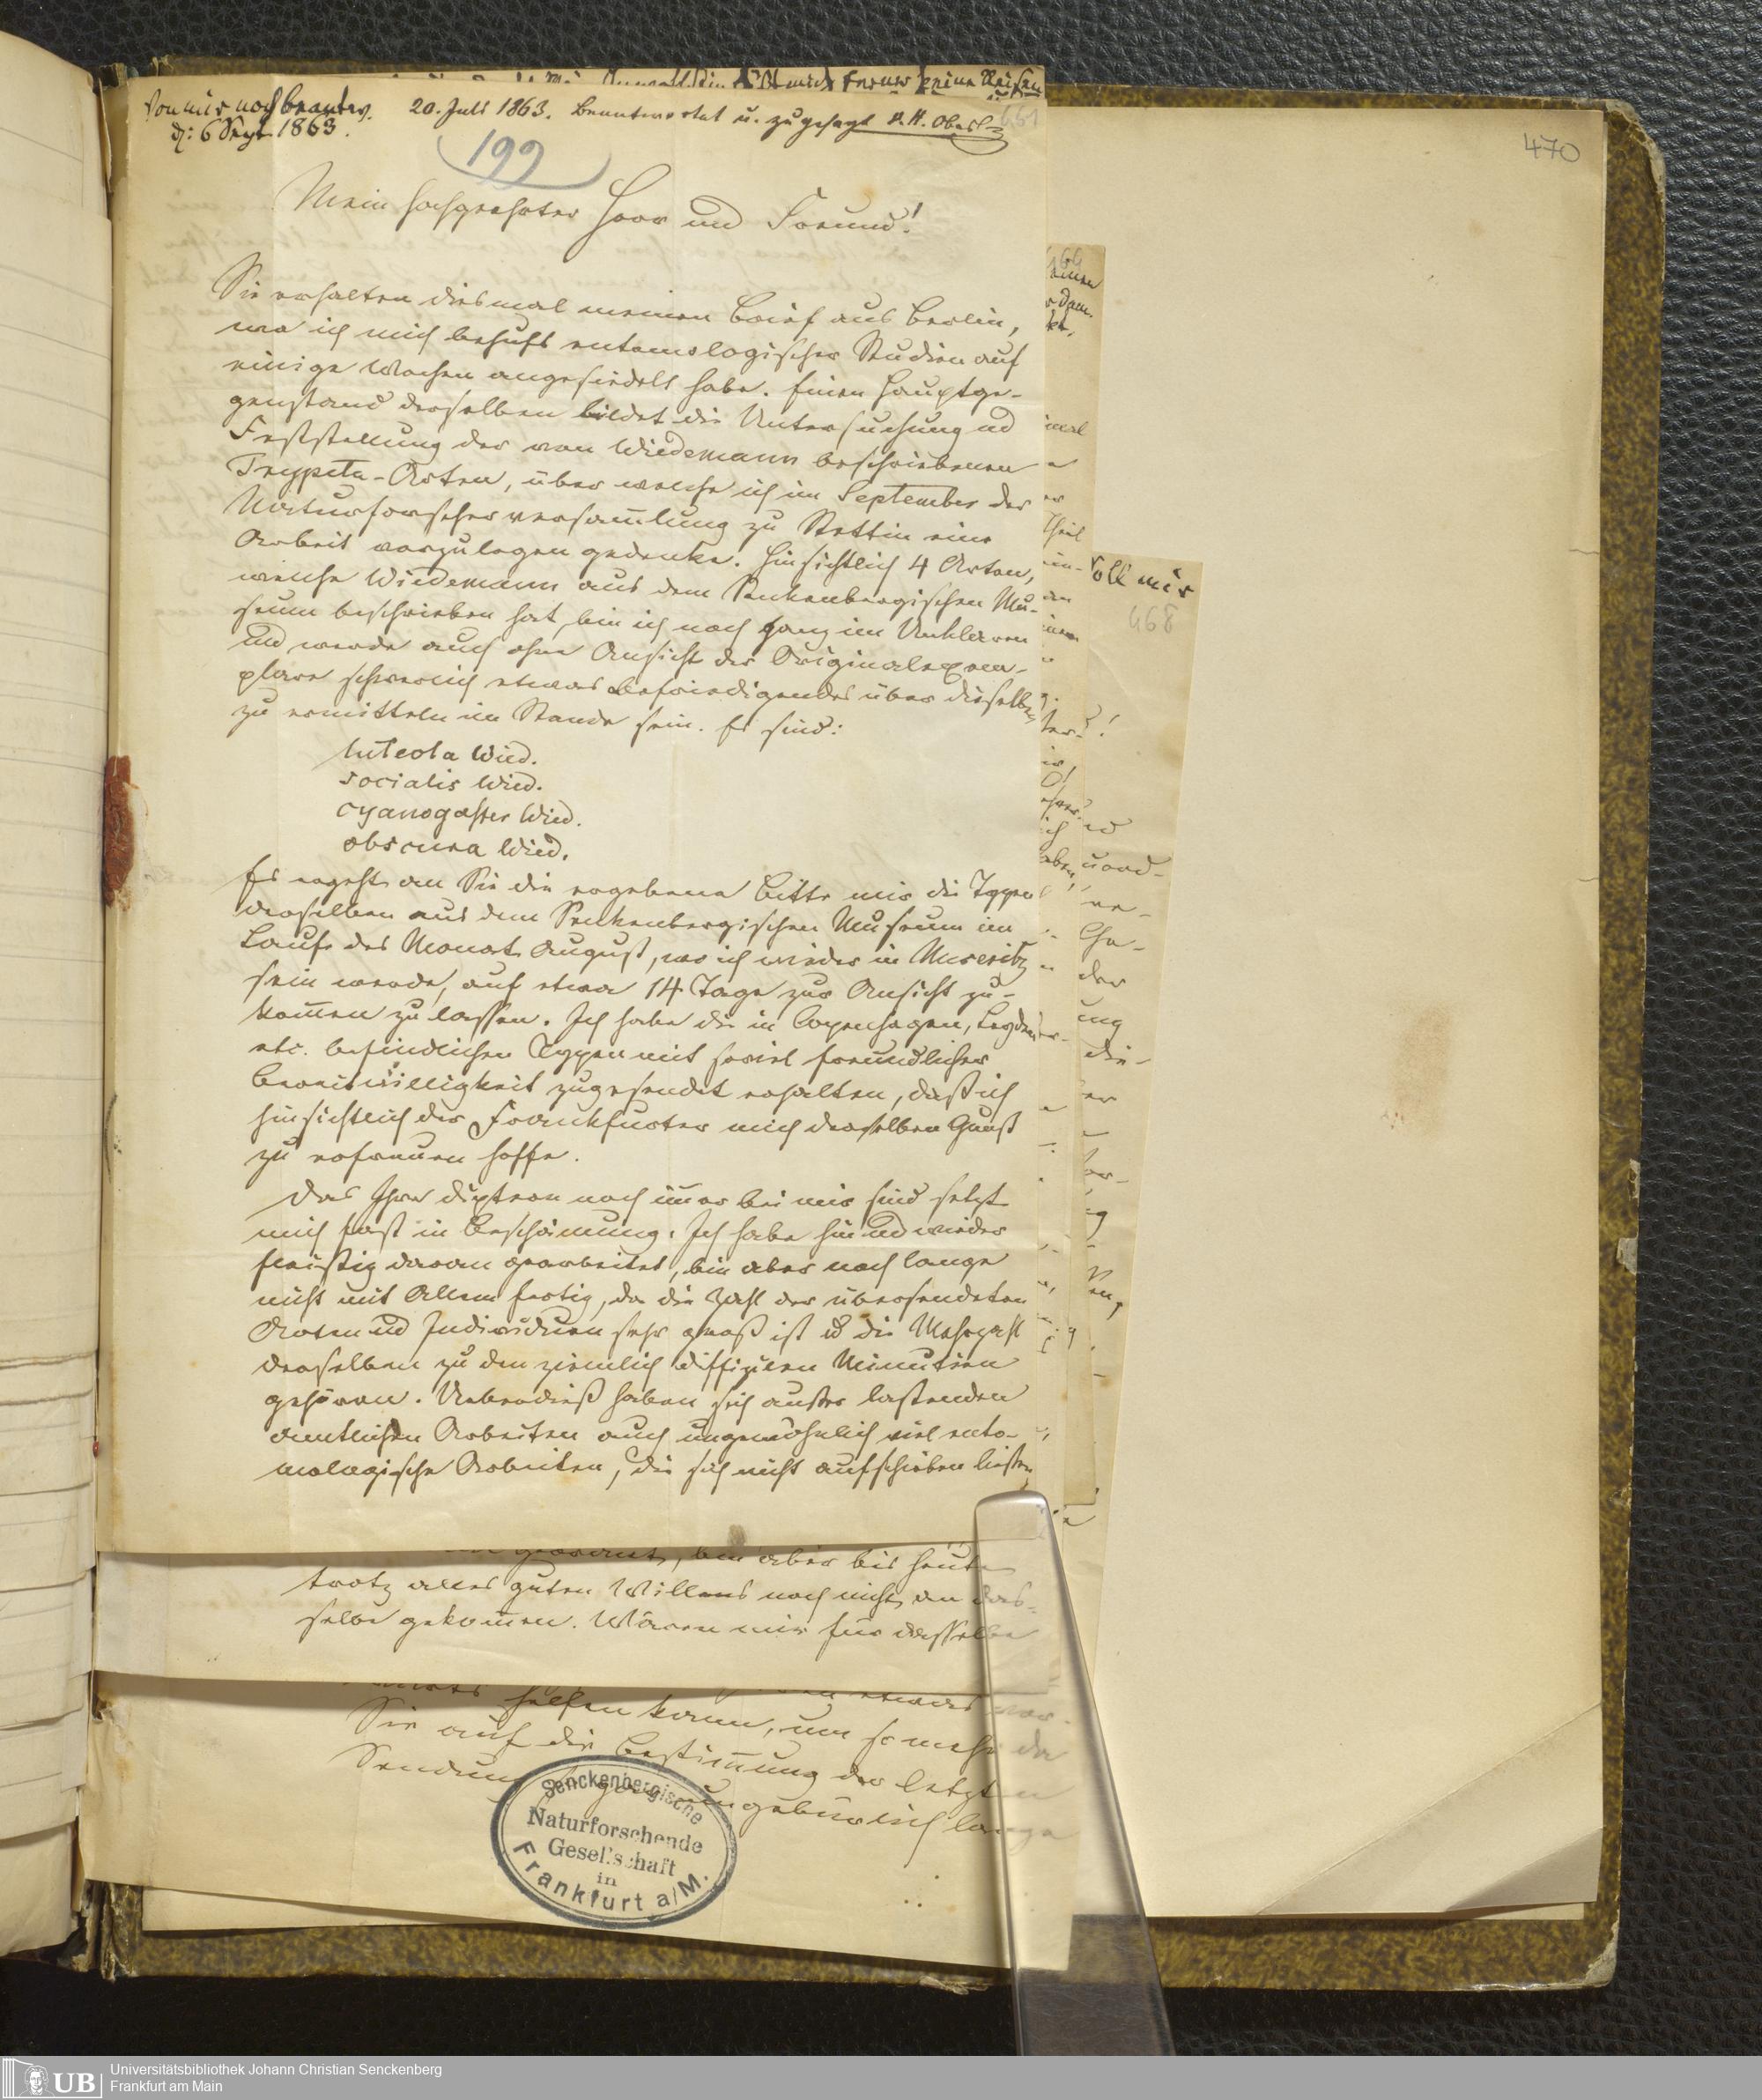 von mir noch beantw.
d: 6 Sept 1863.
20. Juli 1863. Beantwortet u. zugesagt
199
470
Mein hochgeehrter Herr und Freund!
Sie erhalten diesmal meinen Brief aus Berlin,
wo ich mich behufs entomologischer Studien auf
einige Wochen angesiedelt habe. Einen Hauptge-
genstand derselben bildet die Untersuchung ud
Feststellung der von Wiedemann beschriebenen
Trypeta-Arten, über welche ich im September der
Naturforscherversam̅lung zu Stettin eine
Arbeit vorzulegen gedenke. Hinsichtlich 4 Arten,
welche Wiedemann aus dem Senkenbergischen Mu-
seum beschrieben hat, bin ich noch ganz im Unklaren
und werde auch ohne Ansicht der Originalexem-
plare schwerlich etwas befriedigendes über dieselben
zu ermitteln im Stande sein. Es sind:
luteola Wied.
socialis Wied.
cyanogaster Wied.
obscura Wied.
Es ergeht an Sie die ergebene Bitte mir die Typen
derselben aus dem Senkenbergischen Museum im
Laufe des Monat August, wo ich wieder in Meseritz
sein werde, auf etwa 14 Tage zur Ansicht zu-
kom̅en zu lassen. Ich habe die in Copenhagen, Leyden
etc. befindlichen Typen mit soviel freundlicher
Bereitwilligkeit zugesendet erhalten, daß ich
hinsichtlich der Frankfurter mich derselben Gunst
zu erfreuen hoffe.
Das Ihre Diptern noch im̅er bei mir sind setzt
mich fast in Beschämung. Ich habe hin ud wieder
fleißig daran gearbeitet, bin aber noch lange
nicht mit Allem fertig, da die Zahl der übersendeten
Arten ud Individuen sehr groß ist ud die Mehrzahl
derselben zu den ziemlich diffizilen Minutien
gehören. Ueberdieß haben sich außer lastenden
amtlichen Arbeiten auch ungewöhnlich viel ento-
mologische Arbeiten, die sich nicht aufschieben ließen
soll mir
468
bin aber bis heute
trotz alles guten Willens noch nicht an das-
selbe gekom̅en. Wären mir für dasselbe
helfen kann, um so mehr da
Sie auf die Bestim̅ung der letzten
Sendung ungebürlich lange
Senckenbergische
Naturforschende
Gesellschaft
in
Frankfurt a/M.
UB
Universitätsbibliothek Johann Christian Senckenberg
Frankfurt am Main